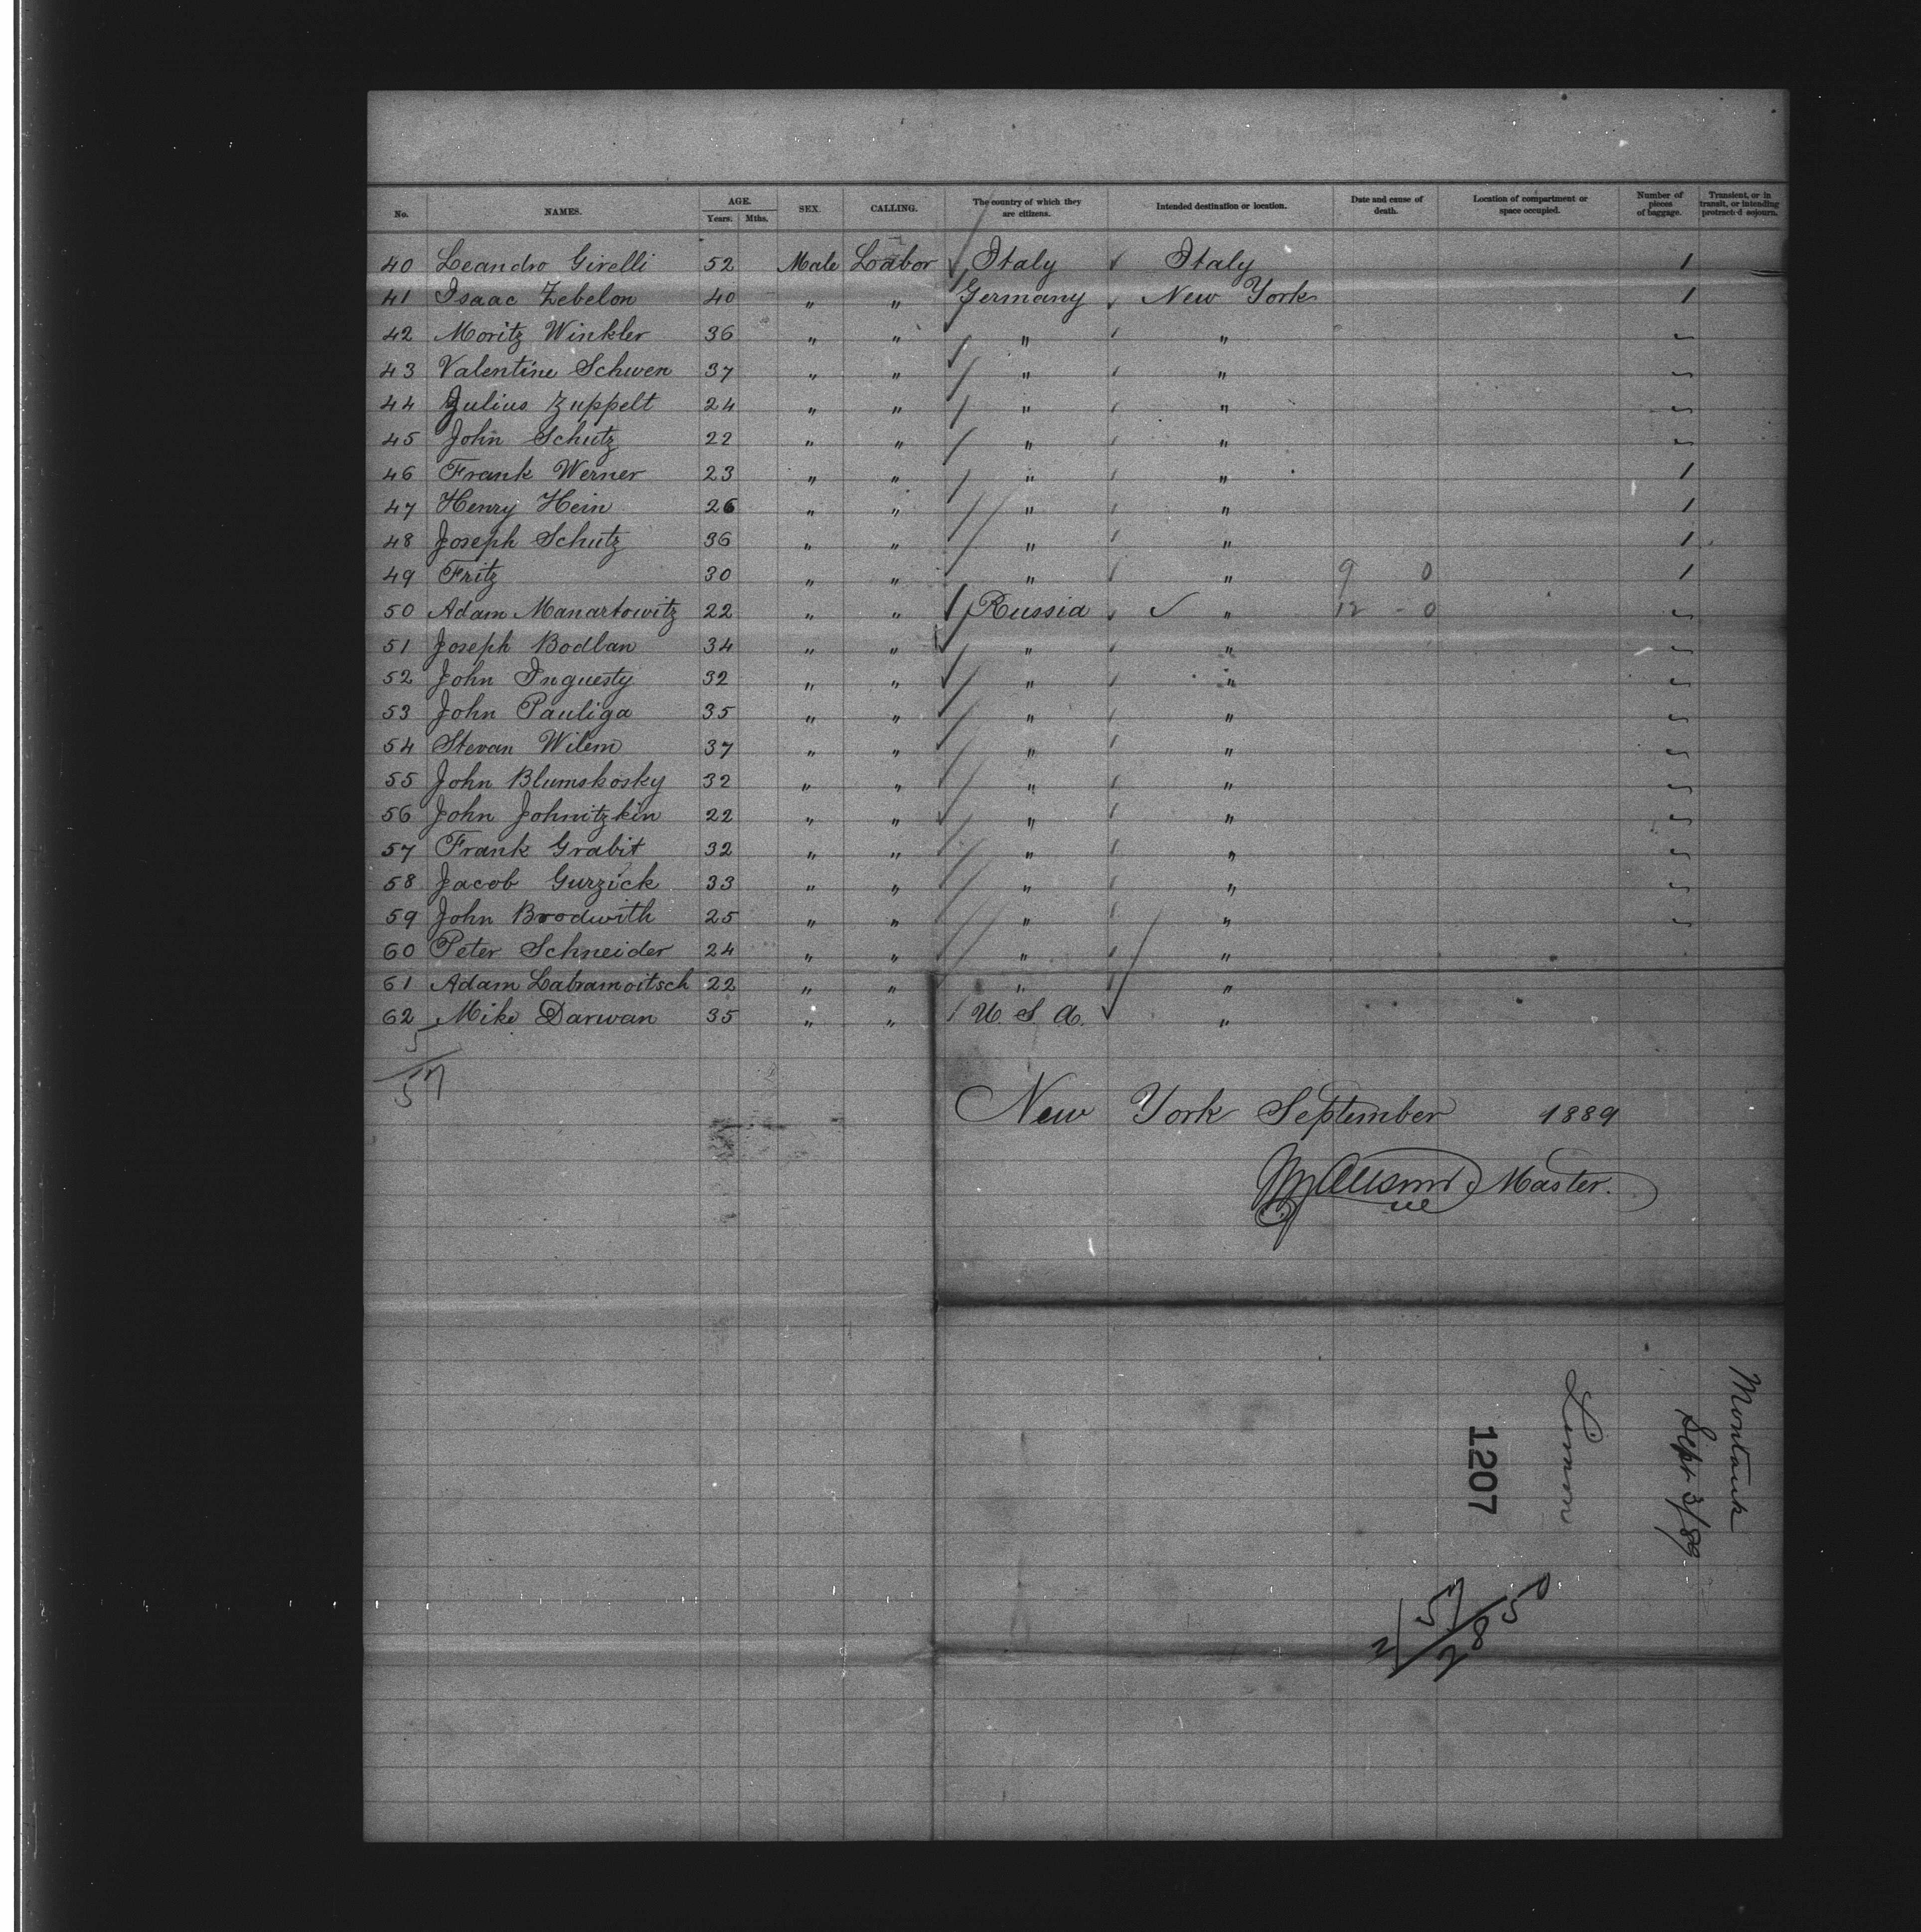 No. NAMES. AGE. Years. Mths. SEX. CALLING. The country of which they are citizens. Intended destination or location. Date and cause of death. Location of compartment or space occupied. Number of pieces of baggage. Transient, or in transit, or intending protracted sojourn.
40 Leandro Girelli 52 Male Labor Italy Italy 1
41 Isaac Zebelon 40 " " Germany New York 1
42 Moritz Winkler 36 " " " "
43 Valentine Schwen 37 " " " "
44 Julius Zuppelt 24 " " " "
45 John Schutz 22 " " " "
46 Frank Werner 23 " " " " 1
47 Henry Hein 26 " " " " 1
48 Joseph Schutz 36 " " " " 1
49 Fritz 30 " " " " 9 0 1
50 Adam Manartowitz 22 " " Russia " 12 - 0
51 Joseph Bodlan 34 " " " "
52 John Inguesty 32 " " " "
53 John Pauliga 35 " " " "
54 Stevan Wilem 37 " " " "
55 John Blumskosky 32 " " " "
56 John Johnitzkin 22 " " " "
57 Frank Grabit 32 " " " "
58 Jacob Gurzick 33 " " " "
59 John Brodwith 25 " " " "
60 Peter Schneider 24 " " " "
61 Adam Labramoitsch 22 " " " "
62 Mike Darwan 35 " " U. S. A. "
5
57
New York September 1889
Master.
Montauk
Sept 3/89
1207
2/57
2850